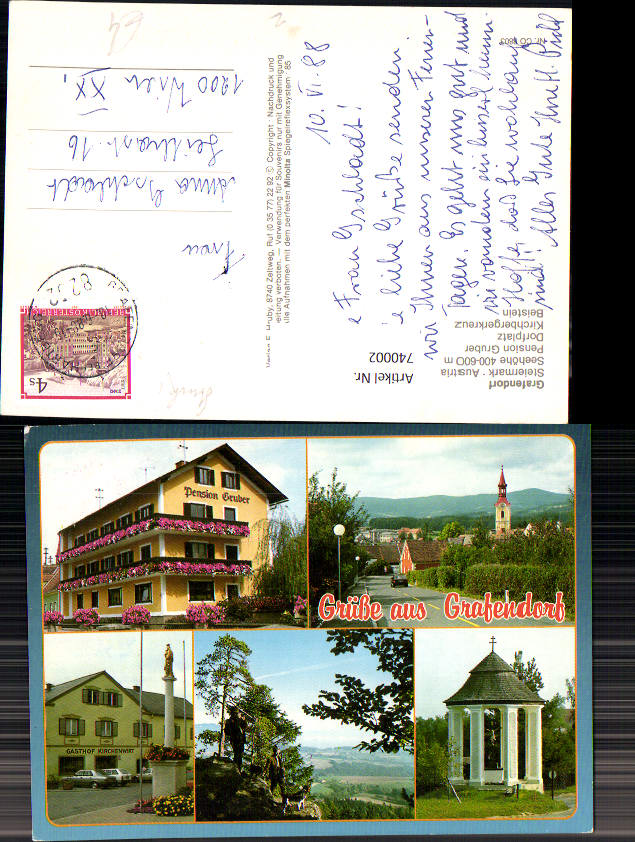 Nr. CO 8803
10. VI. 88
Frau Gschladt!
liebe Grüße senden
wir Ihnen aus unseren Ferien-
tagen. Es geht uns gut und
wir wandern in unserl herum.
Hoffe, daß Sie wohlauf
sind! Alles Gute Ihre H.
Frau
Anna Gschladt
16
1200 Wien XX,
Hruby, 8740 Zeltweg, Ruf (0 35 77) 22 92 © Copyright · Nachdruck und
eitung verboten. — Verwendung für Souvenirs nur mit Genehmigung
lle Aufnahmen mit dem perfekten Minolta Spiegelreflexsystem 85
REPUBLIK ÖSTERREICH
4 s
Artikel Nr.
740002
Grafendorf
Steiermark · Austria
Seehöhe 400-600 m
Pension Gruber
Dorfplatz
Kirchbergerkreuz
Beistein
Pension Gruber
Grüße aus Grafendorf
GASTHOF KIRCHENWIRT